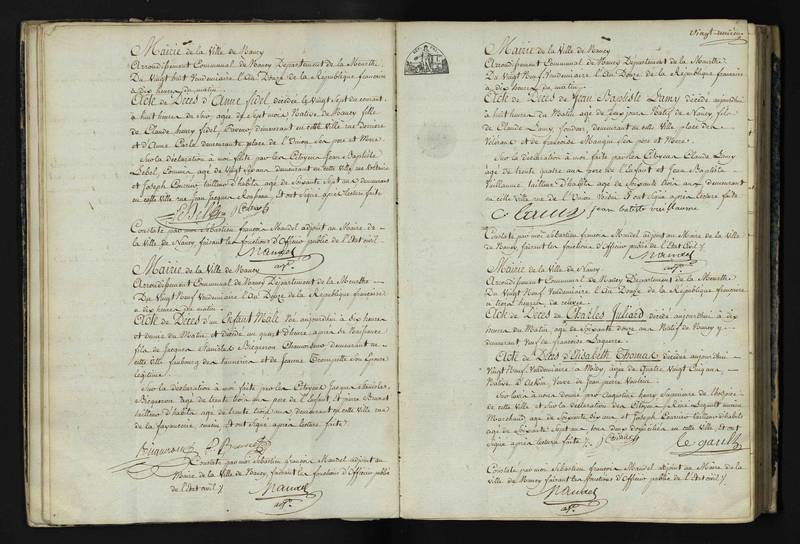 Mairie de la Ville de Nancy
Arrondissement Communal de Nancy Département de la Meurthe
Du Vingt huit Vendemiaire l'an Douze de la République francaise
à dix heures du matin
Acte de Décès d'Anne fidel, décédée le Vingt Sept du courant
à huit heures du Soir, agée de Sept mois Native de Nancy fille
de Claude henry fidel, demeurant en cette Ville rue
et d'Anne demeurante place de l'Union Ses pere et Mere
Sur la déclaration à moi faite par les Citoyens Jean Baptiste
Lebel Commis, agé de Vingt demeurant en cette Ville rue
et Joseph tailleur d'habits, agé de Soixante Sept ans demeurant
en cette Ville rue Jean Jacques Rousseau, Et ont Signé après lecture faite
Constaté par moi Sébastien françois Mandel adjoint au Maire de
la Ville de Nancy, faisant les fonctions d'Officier public de l'Etat civil
Mandel
adj.
Mairie de la Ville de Nancy
Arrondissement Communal de Nancy Département de la Meurthe
Du Vingt Neuf Vendemiaire l'an Douze de la République francaise
à dix heures du matin
Acte de Décès d'un Enfant Male Né aujourdhui à dix heures
et demie du Matin, et décédé un quart d'heure après Sa Naissance
fils de Jacques Stanislas Bicqueron demeurant en
cette Ville faubourg des tanneries et de Jeanne Trompette Son Epouse
légitime
Sur la déclaration à moi faite par les Citoyens Jacques Stanislas
Bicqueron agé de trente trois ans pere de l'Enfant, et pierre
tailleur d'habits agé de trente trois ans demeurant en cette Ville rue
de la fayencerie, voisin, et ont Signé après lecture faite
Constaté par moi Sébastien françois Mandel adjoint au
Maire de la Ville de Nancy, faisant les fonctions d'Officier public
de l'Etat civil
Mandel
adj.
Vingt-unième
Mairie de la Ville de Nancy
Arrondissement Communal de Nancy Département de la Meurthe
Du Vingt Neuf Vendemiaire l'An Douze de la République francaise
à dix heures du matin
Acte de Décès de Jean Baptiste Lamy décédé aujourdhui
à huit heures du Matin agé de jours Natif de Nancy fils
de Claude Lamy, demeurant en cette Ville place de
et de francoise Mangin Ses pere et Mere
Sur la déclaration à moi faite par les Citoyens Claude Lamy
agé de trente quatre ans pere de l'Enfant et Jean Baptiste
Vuillaume tailleur d'habits agé de Soixante trois ans demeurant
en cette Ville rue de l'Union Voisin Et ont Signé après lecture faite
jean batiste vuillaume
Constaté par moi Sébastien françois Mandel adjoint au Maire de la Ville
de Nancy faisant les fonctions d'Officier public de l'Etat Civil
Mandel
adj.
Mairie de la Ville de Nancy
Arrondissement Communal de Nancy Département de la Meurthe
Du Vingt Neuf Vendemiaire l'An Douze de la République francaise
à trois heures de relevée
Acte de Décès de Charles Julliard décédé aujourdhui à dix
heures du Matin, agé de Soixante douze ans Natif de Nancy y
demeurant Veuf de francoise
Acte de Décès d'Elisabeth Thomas décédée aujourdhui
Vingt Neuf Vendemiaire à Midy, agée de Quatre Vingt ans
Native d' Veuve de Jean pierre
Sur l'avis à nous donné par Augustin henry Superieure de l'hospice
de cette Ville et Sur la déclaration des Citoyens
Marchand agé de Soixante dix ans et Joseph tailleur d'habits
agé de Soixante Sept ans, tous deux domiciliés en cette Ville, Et ont
Signé après lecture faite
Constaté par moi Sébastien françois Mandel adjoint au Maire de la
Ville de Nancy faisant les fonctions d'Officier public de l'Etat civil
Mandel
adj.